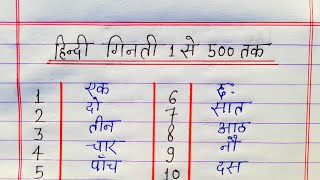 हिन्दी गिनती 1 से 500 तक
1 एक 6 छः
2 दो 7 सात
3 तीन 8 आठ
4 चार 9 नौ
5 पाँच 10 दस